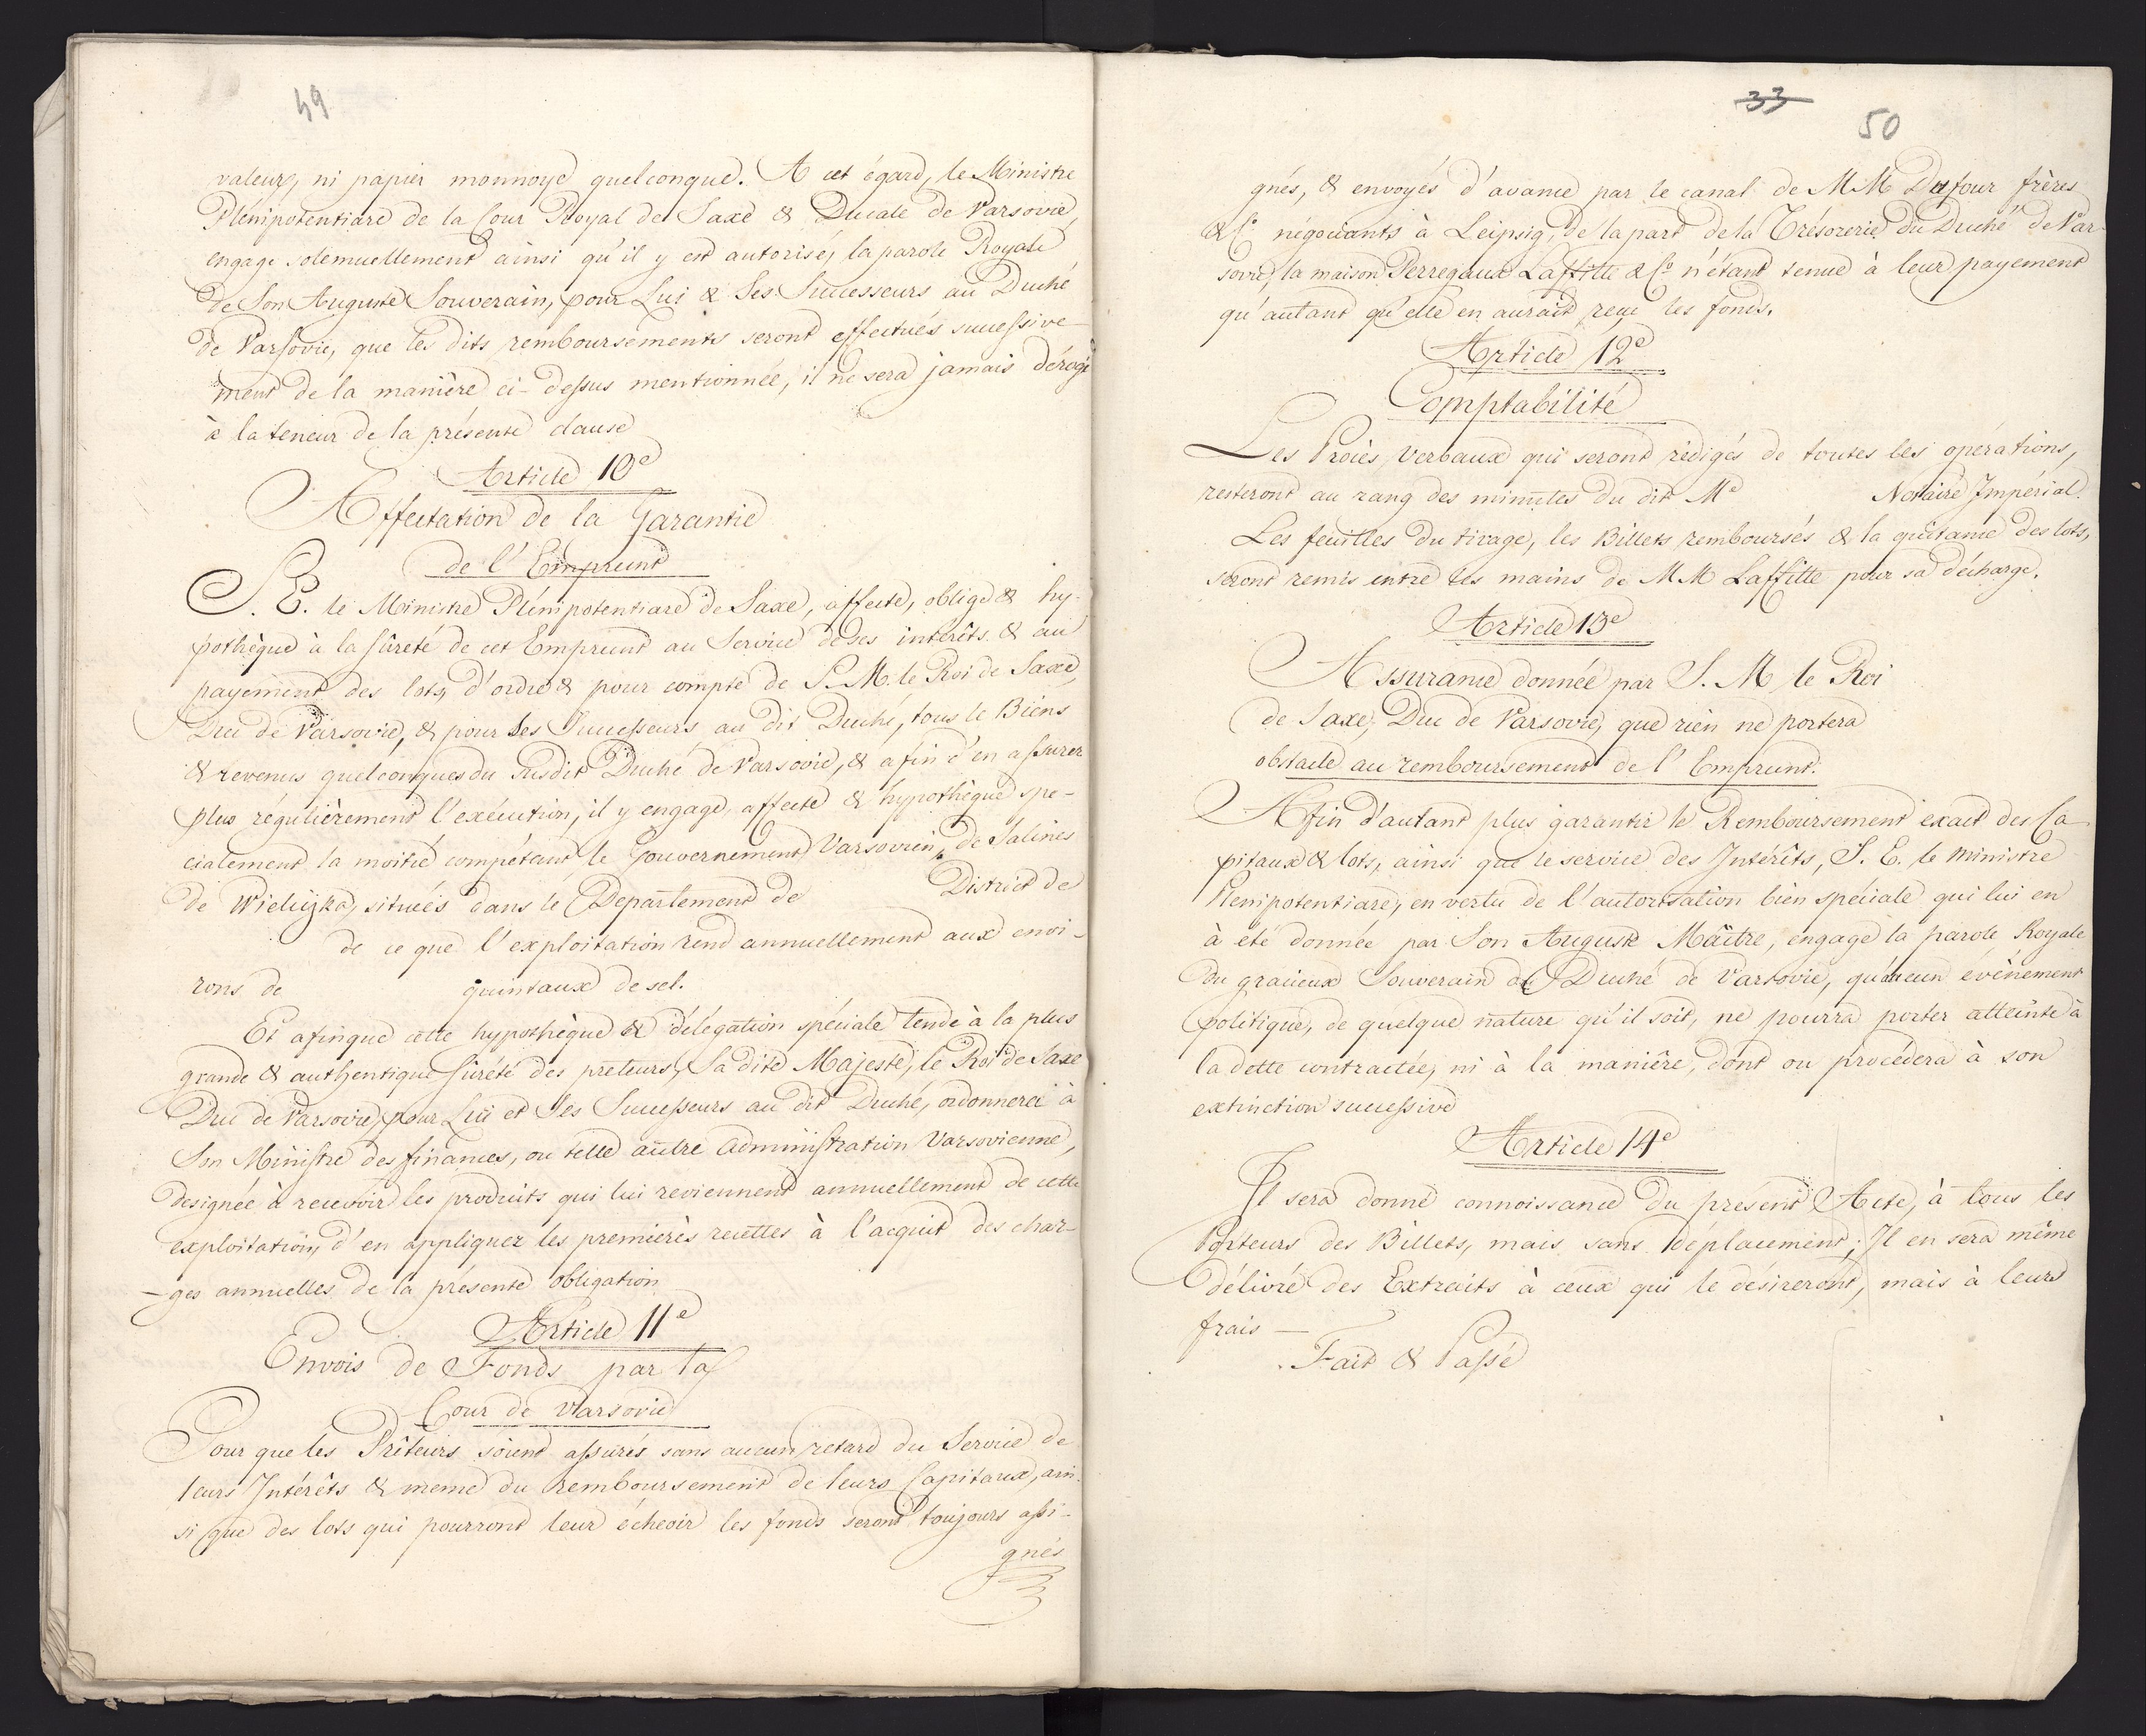 49
valeurs, ni papier monnoye quelconque. A cet égard, le Ministre
Plénipotentiare de la Cour Royal de Saxe & Ducale de Varsovie,
engage solemnellement ainsi qu'il y est autorisé, la parole Royale
de Son Auguste Souverain, pour Lui & Ses Successeurs au Duché
de Varsovie, que les dits remboursements seront effectués successive-
ment de la manière ci-dessus mentionnée, il ne sera jamais dérogé
à la teneur de la présente clause
Article 10e
Affectation de la Garantie
de l'Emprunt
S. E. le Ministre Plénipotentiare de Saxe, affecte, oblige & hy-
pothèque à la sûreté de cet Emprunt au Service de ses intérêts & au
payement des lots, d'ordre & pour compte de S. M. le Roi de Saxe,
Duc de Varsovie, & pour Ses Successeurs au dit Duché, tous le Biens
& revenus quelconques du susdit Duché de Varsovie, & afin d'en assurer
plus régulièrement l'exécution, il y engage, affecte & hypothèque spe-
cialement la moitié compétant le Gouvernement Varsovien, de Salines
de Wieliczka, situés dans le Département de District de
de ce que l'exploitation rend annuellement aux envi-
rons de quintaux de sel.
Et afinque cette hypothèque & délégation spéciale tende à la plus
grande & authentique sûreté des preteurs, Sa dite Majesté, le Roi de Saxe
Duc de Varsovie, pour Lui et Ses Successeurs au dit Duché, ordonnera à
Son Ministre des finances, ou telle autre administration Varsovienne,
designée à recevoir les produits qui lui reviennent annuellement de cette
exploitation, d'en appliquer les premières recettes à l'acquit des char-
-ges annuelles de la présente obligation
Article 11e
Envois de Fonds par la
Cour de Varsovie
Pour que les Prêteurs soient assurés sans aucun retard du Service de
leurs Intérêts & meme du remboursement de leurs Capitaux, ain-
si que des lots qui pourront leur écheoir les fonds seront toujours assi-
gnés
33
50
gnés, & envoyés d'avance par le canal de MM Dufour frères
& Co négociants à Leipsig, de la part de la Trésorerie du Duché de Var-
sovie, la maison Perregaux Laffitte & Co n'étant tenue à leur payement
qu'autant qu'elle en aurait reçu les fonds.
Article 12e
Comptabilité
Les Procès, verbaux qui seront rédigés de toutes les opérations,
resteront au rang des minutes du dit Me Notaire Impérial.
Les feuilles du tirage, les Billets remboursés & la quitance des lots,
seront remis entre les mains de MM Laffitte pour sa décharge.
Article 13e
Assurance donnée par S. M le Roi
de Saxe, Duc de Varsovie, que rien ne portera
obstacle au remboursement de l'Emprunt.
Afin d'autant plus garantir le Remboursement exact des Ca-
pitaux & lots, ainsi que le service des Intérêts, S. E. le Ministre
Plenipotentiare, en vertu de l'autorisation bien spéciale qui lui en
à été donnée par Son Auguste Maître, engage la parole Royale
du gracieux Souverain du Duché de Varsovie, qu'aucun événement
politique, de quelque nature qu'il soit, ne pourra porter atteinte à
la dette contractée, ni à la manière, dont on procédera à son
extinction successive
Article 14e
Il sera donné connoissance du present Acte, à tous les
Porteurs des Billets, mais sans déplacement; Il en sera même
délivré des Extraits à ceux qui le désireront, mais à leurs
frais —
Fait & Passé